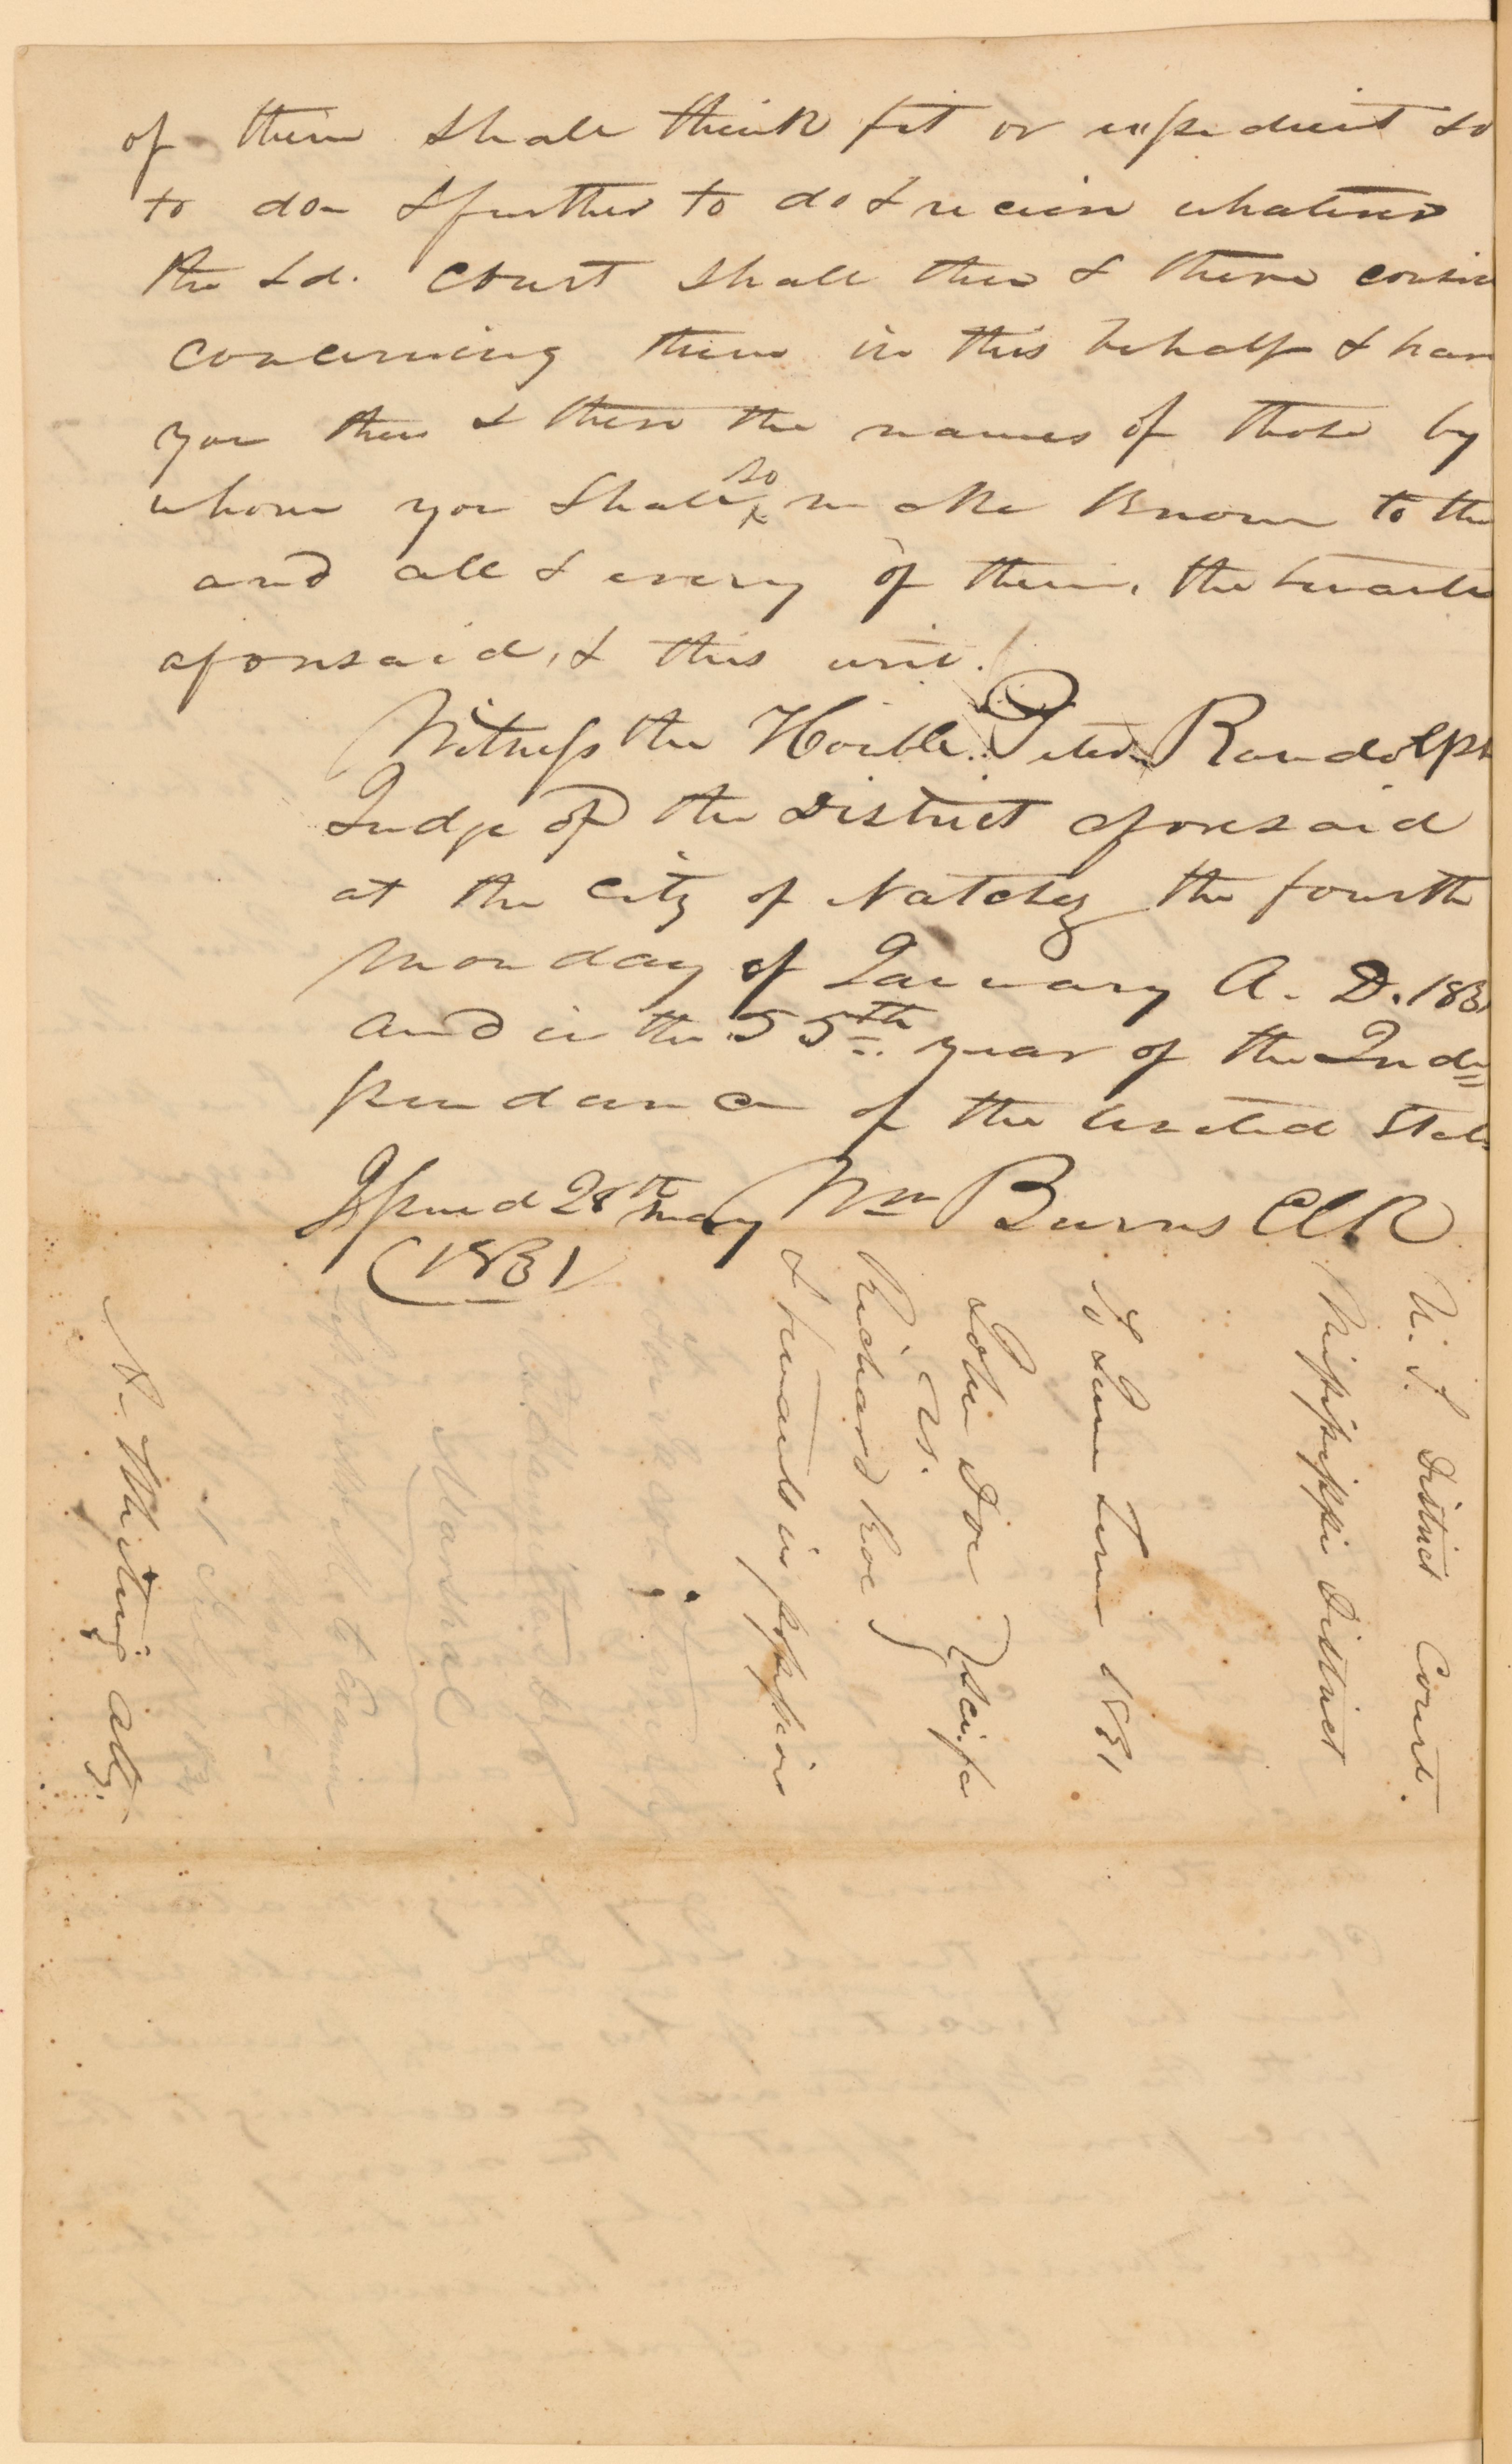 of them shall think fit or expedient so
to do & further to do & receive whatever
the sd. Court shall then & there consid
concerning them in this behalf & have
you then & there the names of those by
whom you shall so make known to the
and all & every of them, the tenants
aforesaid, & this writ.
Witness the Honble. Peter Randolph
Judge of the District aforesaid
at the City of Natchez the fourth
monday of January A. D. 1831
and in the 55th year of the Inde=
pendance of the United States
Issued 28th may Wm Burns Clk
(1831)
U. S. District Court.
Mississippi District
To June Term 1831
John Doe
vs. } sci. fa
Richard Roe
& tenants in possession
A. Whiting atty.